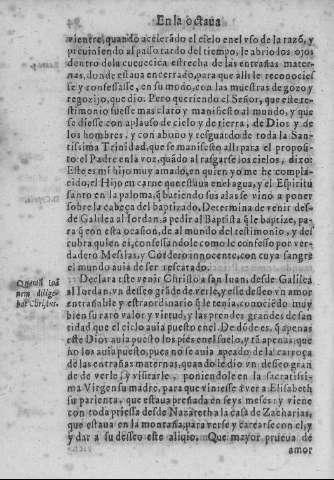 En la octaua
viniere, quando acelerãdo el cielo enel vso de la razõ, y
preuiniendo al passo tardo del tiempo, le abrio los ojos
dentro dela cueuecica estrecha de las entrañas mater-
nas, donde estaua encerrado, para que alli le reconocies-
se y confessasse, en su modo, con las muestras de gozo y
regozijo, que dio: Pero queriendo el Señor, que este tes-
timonio fuesse mas claro y manifiesto al mundo, y que
se diesse con aplauso de cielo y de tierra, de Dios y de
los hombres, y con abono y resguardo de toda la San-
tissima Trinidad, que se manifesto alli para el proposi-
to: el Padre enla voz, quãdo al rasgarse los cielos, dixo:
Este es mi hijo muy amado, en quien yo me he compla-
cido, el Hijo en carne que estaua enel agua, y el Espiritu
santo en la paloma, q̃ batiendo sus alas se vino a poner
sobre la cabeça del baptizado, Determina de venir des-
de Galilea al Iordan, à pedir al Baptista q̃ le baptize, pa-
ra q̃ con esta ocasion, de al mundo del testimonio, y des
cubra quien ei, confessandole como le confesso por ver-
dadero Messias, y Cordero innocente, con cuya sangre
el mundo auia de ser rescatado.
Declara este venir Christo à san Iuan, desde Galilea
al Iordan, vn desseo grãde de verle, y esse desseo vn amor
entrañable y estraordinario q̃ le tenia, conociẽdo muy
bien su raro valor y virtud, y las prendes grandes de san
tidad que el cielo auia puesto enel. De dõde es, q̃ apenas
este Dios auia puesto los pies enel suelo, y tã apenas, que
no los auia puesto, pues no se auia apeado de la carroça
de las entrañas maternas, quando le dio vn desseo gran-
de de verle, y visitarle, poniendole en la sacratissi-
ma Virgen su madre, para que viniesse à ver a Elisabeth
su parienta, que estaua preñada en seys meses: y viene
con toda priessa desde Nazareth a la casa de Zacharias,
que estaua en la montaña, para verse y carearse con el, y
y dar a su desseo este aliuio. Que mayor prueua de
amor